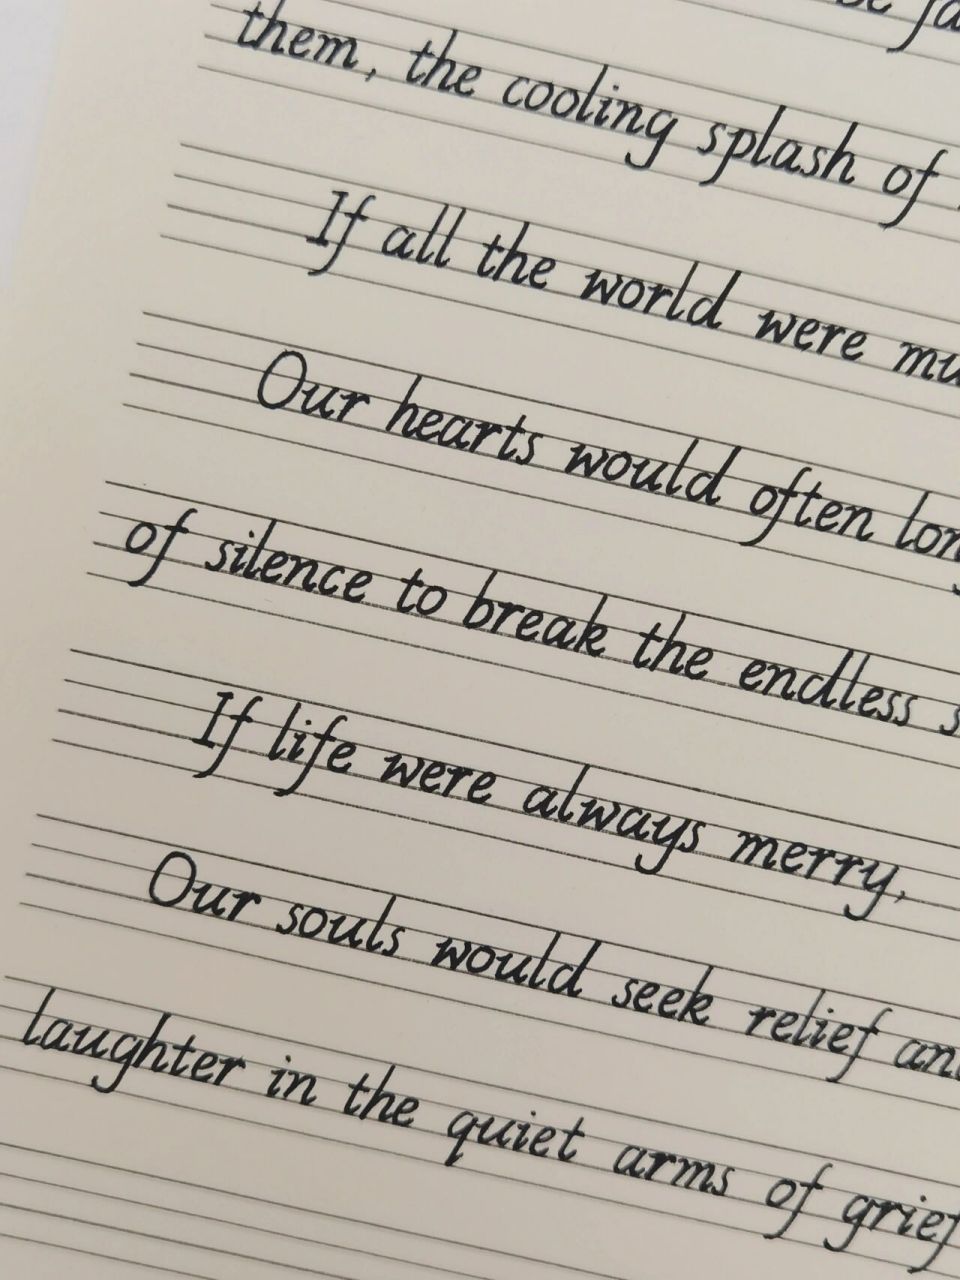 them, the cooling splash of
If all the world were
Our hearts would often
of silence to break the endless
If life were always merry,
Our souls would seek relief
laughter in the quiet arms of grief